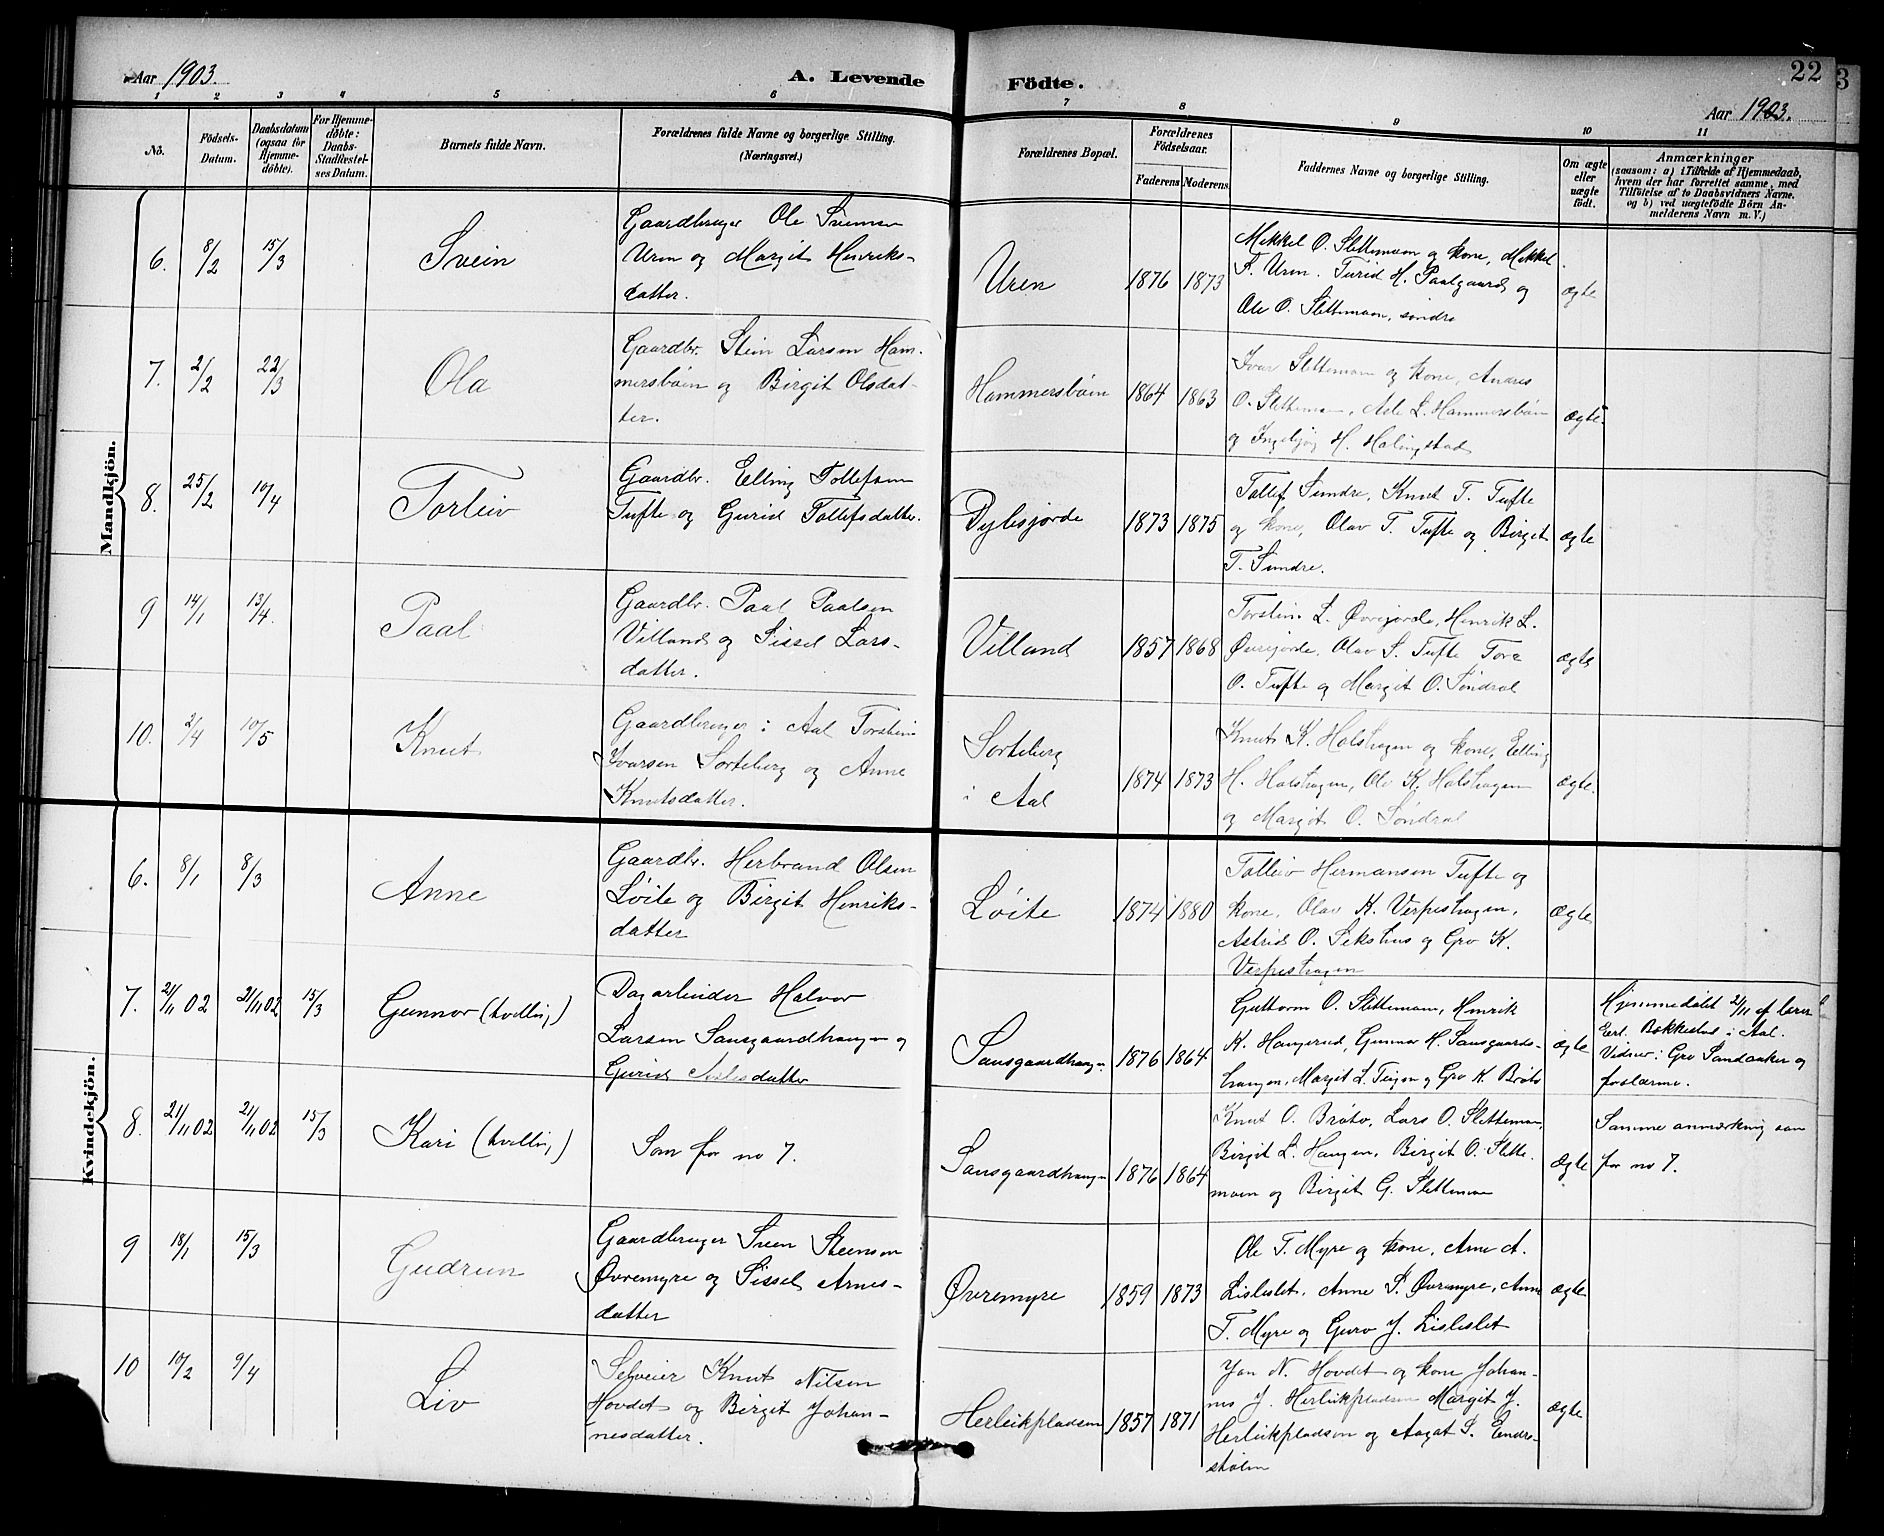 Aar 1903.
A. Levende Födte.
22
3
Aar 1903.
1 2 3 4 5 6 7 8 9 10 11
No.
Födsels-
Datum.
Daabsdatum
(ogsaa for
Hjemme-
döbte).
For Hjemme-
döbte:
Daabs-
Stadfæstel-
ses Datum.
Barnets fulde Navn.
Forældrenes fulde Navne og borgerlige Stilling.
(Næringsvei.)
Forældrenes Bopæl.
Forældrenes
Födselsaar.
Faderens
Moderens
Faddernes Navne og borgerlige Stilling.
Om ægte
eller
uægte
födt.
Anmærkninger
(saasom: a) i Tilfælde af Hjemmedaab,
hvem der har forrettet samme, med
Tilföielse af to Daabsvidners Navne,
og b) ved uægtefödte Börn An-
melderens Navn m. V.)
Mandkjön.
6. 8/2 15/3
Svein
Gaardbruger Ole Svensen
Uren og Margit Henriks-
datter.
Uren
1876 1873
Mikkel O. Slettemoen og kone, Mikkel
S. Uren. Turid H. Paalgaard og
Ole O. Slettemoen, søndre
ægte
7. 2/2 22/3
Ola
Gaardbr. Stein Larsen Ham-
mersbøen og Birgit Olsdat-
ter.
Hammersbøen
1864 1863
Ivar Slettemoen og kone, Anders
O. Slettemoen, L. Hammersbøen
og Ingebjøg H.
ægte.
8. 25/2 10/4
Torleiv
Gaardbr. Elling Tollefsen
Tufte og Gurid Tollefsdatter.
1873 1875
Tollef Sundre, Knut T. Tufte
og kone, Olav T. Tufte og Birgit
T. Sundre.
ægte
9 14/1 13/4.
Paal
Gaardbr. Paal Paalsen
Villand og Sissel Lars-
datter.
Villand
1857 1868
Torstein L. Øvrejorde, Henrik L.
Øvrejorde, Olav S. Tufte Tore
O. Tufte og Margit O. Søndral
ægte
10. 2/4 10/5
Knut
Gaardbruger i Aal Torstein
Ivarsen Sorteberg og Anne
Knutsdatter.
Sorteberg
i Aal
1874 1873
Knut K. Holshagen og kone, Elling
H. Holshagen, Ole K. Holshagen
og Margit O. Søndral
ægte.
Kvindekjön.
6. 8/1 8/3
Anne
Gaardbr. Herbrand Olsen
Løite og Birgit Henriks-
datter
Løite
1874 1880
Tolleiv Hermansen Tufte og
kone, Olav K. Verpeshagen,
Astrid O. Sekshus og Gro K.
Verpeshagen
ægte
7. 21/11 02 21/11 02 15/3
Gunnor (tvilling)
Dagarbeider Halvor
Larsen Sansgaardhaugen og
Gurid datter
Sansgaardhaugen
1876 1864
Guttorm O. Slettemoen, Henrik
K. Haugerud, Gunnar H. Sansgaards-
haugen, Margit L. Teigen og Gro K. Brøto
ægte
Hjemmedøbt 21/11 af lærer
Erl. Bakkestus i Aal.
Vidner: Gro Sandaaker og
forelærerne.
8. 21/11 02 21/11 02 15/3
Kari (tvilling)
Som for no 7.
Sansgaardhaugen
1876 1864
Knut O. Brøto, Lars O. Slettemoen,
Birgit L. Haugen, Birgit O. Slette-
moen og Birgit G. Slettemoen
ægte
Samme anmærkning som
for no 7.
9 18/1 15/3
Gudrun
Gaardbruger Sven Steenson
Øvremyre og Sissel Arnes-
datter
Øvremyre
1859 1873
Ole T. Myre og kone, Arne A.
Lislelet, Anne S. Øvremyre, Anne
T. Myre og Guro J. Lislelet
ægte
10 10/2 9/4
Liv
Selveier Knut Nilsen
Hovdet og Birgit Johan-
nesdatter.
Herleikpladsen
1857 1871
Jon N. Hovdet og kone Johan-
nes J. Herleikpladsen Margit J.
Herleikpladsen og Aagot S. Endre-
stølen
ægte